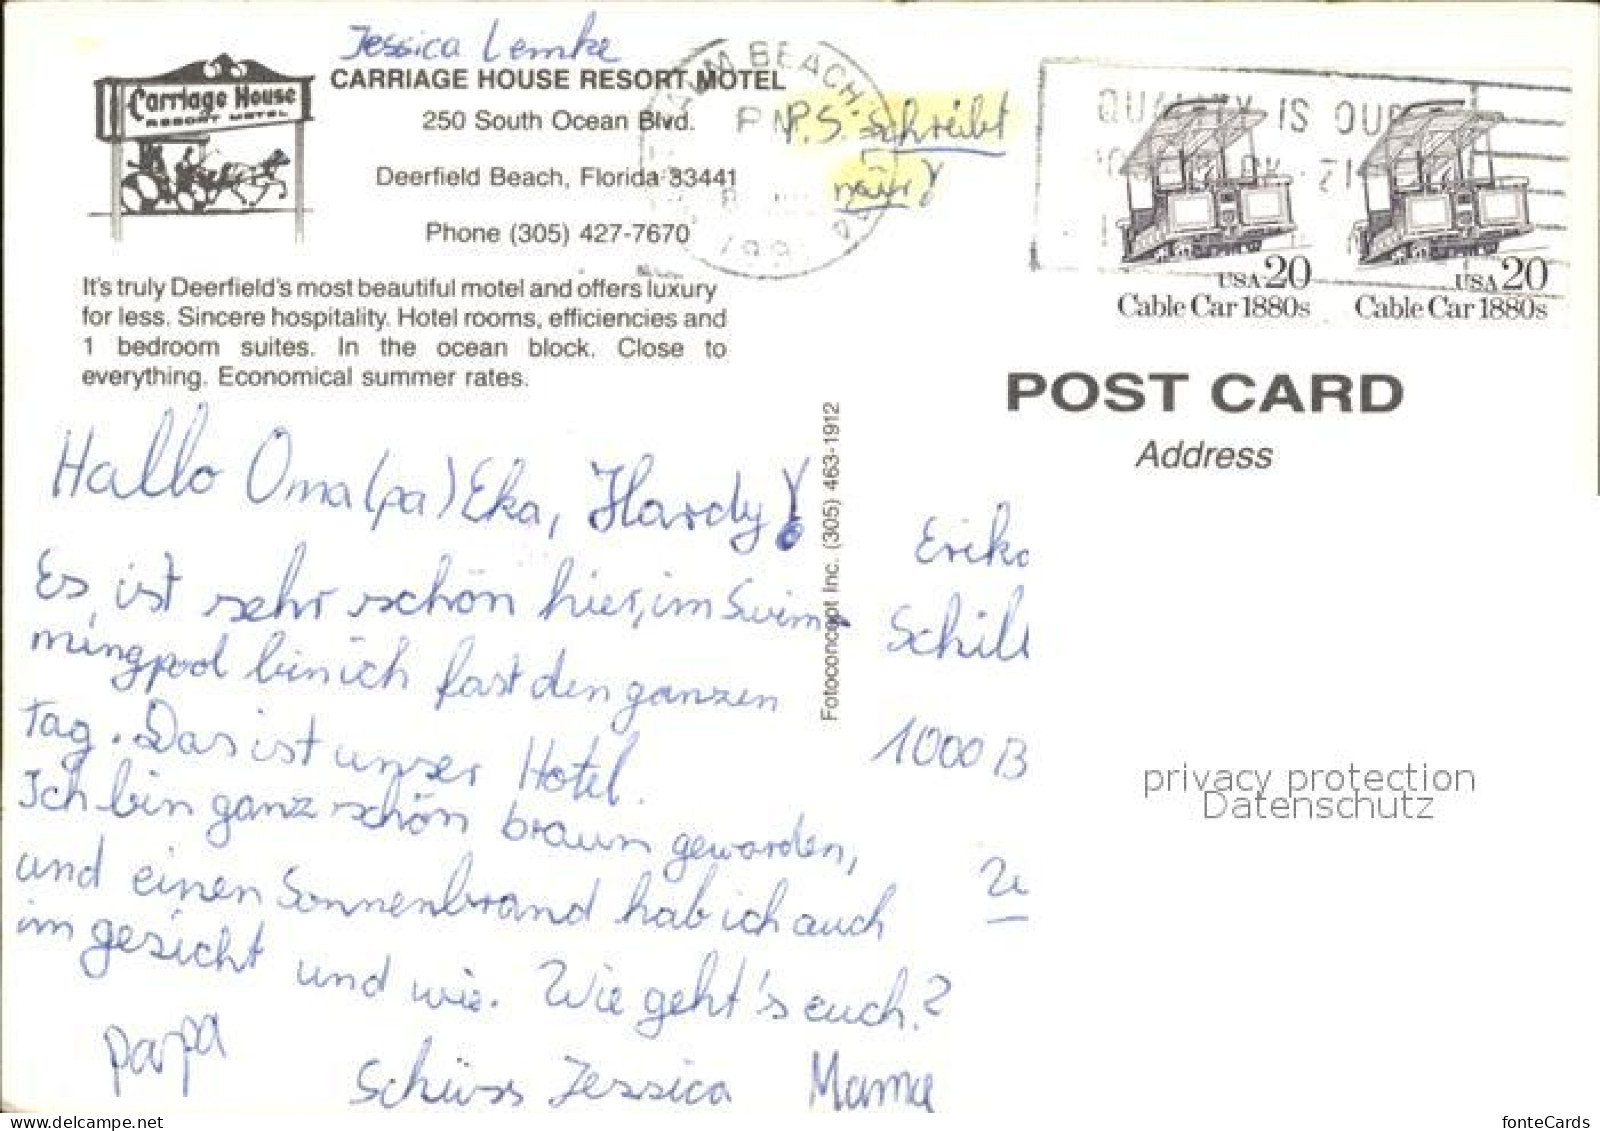 Jessica Lemke
Carriage House
RESORT MOTEL
CARRIAGE HOUSE RESORT MOTEL
250 South Ocean Blvd.
Deerfield Beach, Florida 33441
Phone (305) 427-7670
It's truly Deerfield's most beautiful motel and offers luxury
for less. Sincere hospitality. Hotel rooms, efficiencies and
1 bedroom suites. In the ocean block. Close to
everything. Economical summer rates.
BEACH
P.S. schreibt
QUALITY IS OUR
USA 20
Cable Car 1880s
USA 20
Cable Car 1880s
POST CARD
Address
Fotoconcept Inc. (305) 463-1912
Hallo Oma(pa) Eka, Hardy!
Es ist sehr schön hier, im Swim-
mingpool bin ich fast den ganzen
Tag. Das ist unser Hotel.
Ich bin ganz schön braun geworden,
und einen Sonnenbrand hab ich auch
im gesicht und wie. Wie geht's euch?
Papa
Schüss Jessica
Mama
Erika
Schill
1000 B
privacy protection
Datenschutz
fonteCards